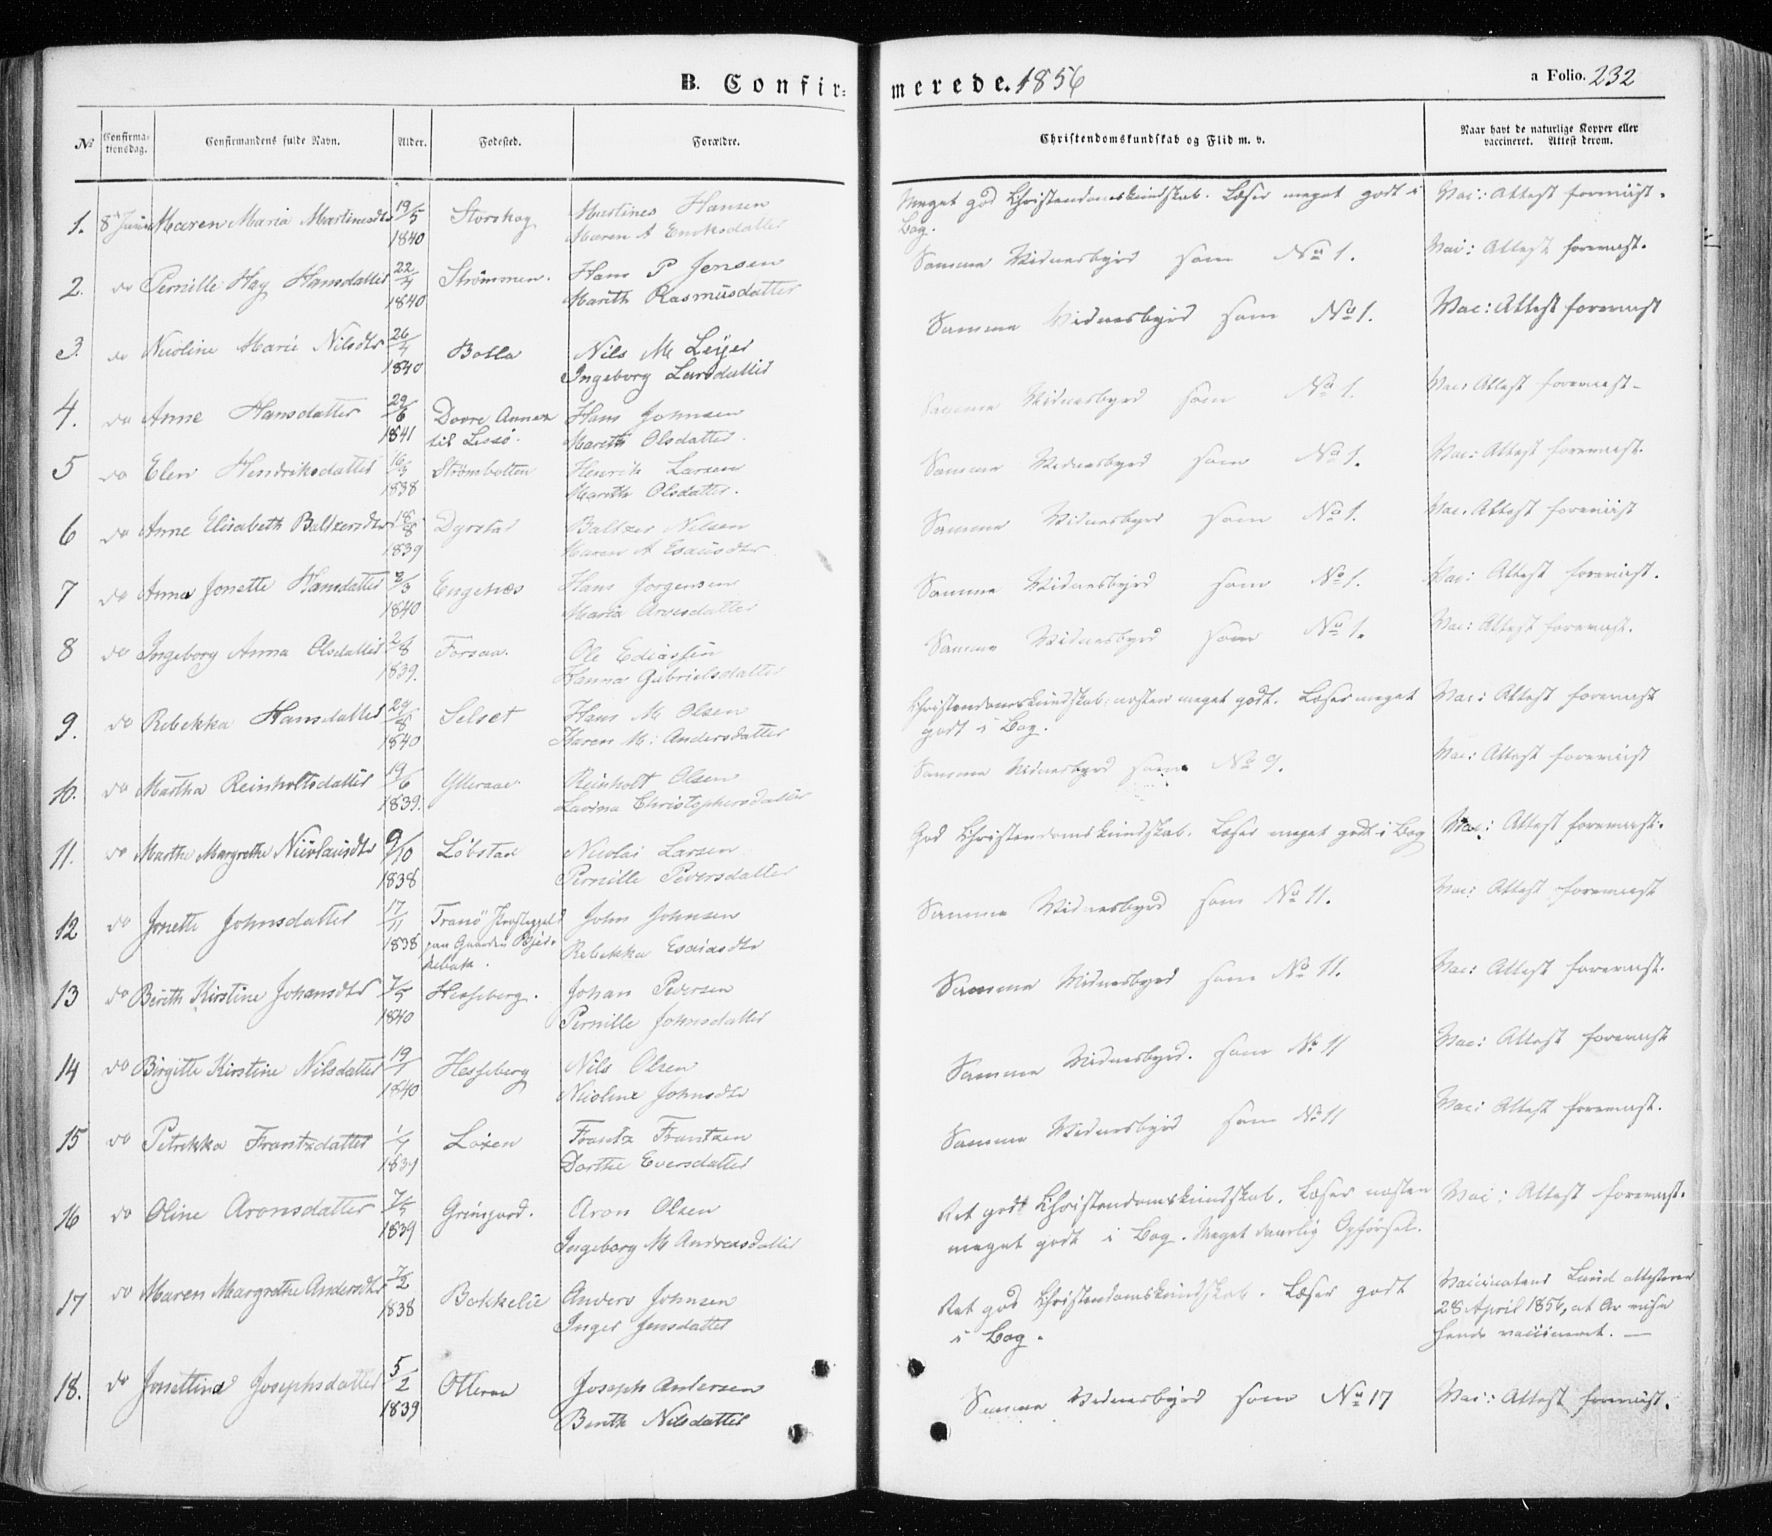 B. Confir-merede. 1856
a Folio. 232
No Confirma-tionsdag. Confirmandens fulde Navn. Alder. Fødested. Forældre. Christendomskundskab og Flid m. v. Naar havt de naturlige Kopper eller vaccineret. Attest derom.
1. 8 Juni Maren Maria Martinesdtr 19/5 Storskog Martines Hansen Meget god Christendomskundskab. Læser meget godt i Vac: Attest foreviist.
1840 Maren A Bog.
2. do Pernille Hansdatter 22/4 Strømmen. Hans P Jensen Samme Vidnesbyrd som No 1. Vac: Attest foreviist.
1840 Marith Rasmusdatter
3. do Nicoline Marie Nilsdtr 26/4 Bolla Nils M Samme Vidnesbyrd som No 1. Vac: Attest foreviist
1840 Ingeborg Larsdatter
4. do Anne Hansdatter 29/6 Dovre Annex Hans Johnsen Samme Vidnesbyrd som No 1. Vac: Attest foreviist
1841 til Marith Olsdatter.
5 do Elen Hendriksdatter 16/3 Strømbotten Henrik Larsen Samme Vidnesbyrd som No 1. Vac: Attest foreviist.
1838 Marith Olsdatter.
6 do Anne Elisabeth Baltzersdtr 18/8 Dyrstad Baltzer Nilsen Samme Vidnesbyrd som No 1. Vac. Attest foreviist
1839 Maren A Esaiasdtr
7 do Anna Jonette Hansdatter 3/3 Engenæs Hans Jørgensen Samme Vidnesbyrd som No 1. Vac: Attest foreviist.
1840 Maria Arvesdatter
8 do Ingeborg Anna Olsdatter Forsaa. Ole Ediassen Samme Vidnesbyrd som No 1. Vac: Attest foreviist.
1839. Hanna Gabrielsdatter
9. do Rebekka Hansdatter 24/8 Selset Hans M Olsen Christendomskundskab: næsten meget godt. Læser meget Vac: Attest foreviist
1840 Karen M: Andersdatter godt i Bog.
10. do Martha Reinholtsdatter 19/6 Ytteraae Reinholt Olsen Samme Vidnesbyrd som No 9. Vac: Attest foreviist
1839. Lavina Christophersdatter
11. do Marthe Margrethe Nicolaisdtr 9/10 Løbstad Nicolai Larsen God Christendomskundskab. Læser meget godt i Bog Vac: Attest foreviist.
1838 Pernille Pedersdatter
12 do Jonette Johnsdatter 17/11 Tranø Præstegjeld John Johnsen Samme Vidnesbyrd som No 11. Vac: Attest foreviist
1838 paa Gaarden Rebekka Esaiasdtr
13 do Berith Kirstine Johansdtr 7/5 Hesseberg. Johan Pedersen Samme Vidnesbyrd som No 11. Vac: Attest foreviist.
1840 Pernille Johnsdatter
14 do Birgitte Kirstine Nilsdatter 19/1 Hesseberg Nils Olsen Samme Vidnesbyrd. som No 11 Vac: Attest foreviist
1840 Nicoline Johnsdtr
15 do Petrikka Frantzdatter Løxen Frantz Frantzen Samme Vidnesbyrd som No 11 Vac: Attest foreviist.
1839 Dorthe Eversdatter
16 do Oline Aronsdatter 7/5 Grinjord. Aron Olsen Ret godt Christendomskundskab. Læser næsten Vac: Attest foreviist.
1839 Ingeborg M Andreasdatter meget godt i Bog. Meget daarlig Opførsel.
17 do Maren Margrethe Andersdtr 7/2 Bokkelie Anders Johnsen Ret god Christendomskundskab. Læser godt Vaccinateur Lund attesterer
1838 Inger Jensdatter i Bog. 28 April 1856, at
vaccineret.
18. do Jonettina Josephsdatter 5/2 Otteraa Joseph Andersen Samme Vidnesbyrd som No 17 Vac: Attest foreviist.
1839 Berith Nilsdatter